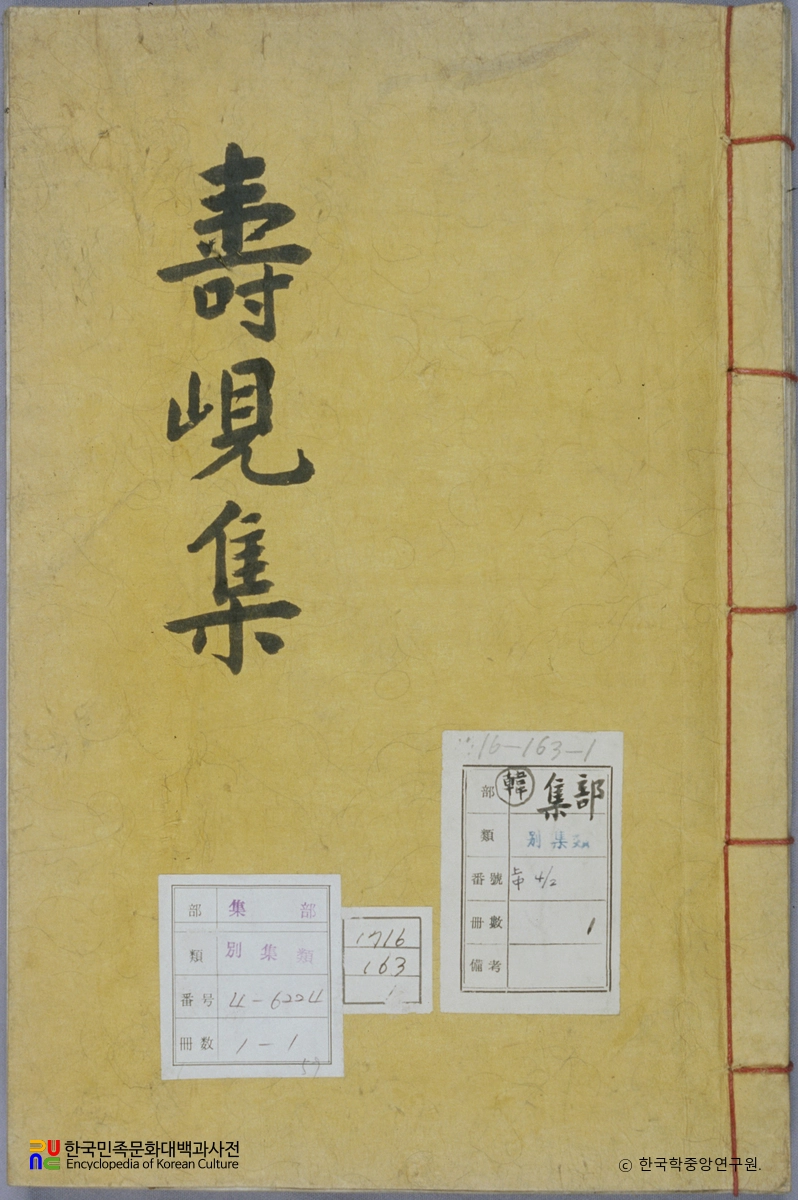 壽峴集
16-163-1
部 韓 集部
類 別集類
番號 4/2
冊數 1
備考
部 集部
類 別集類
番号 4-6224
冊数 1-1
59
1716
163
1
한국민족문화대백과사전
Encyclopedia of Korean Culture
© 한국학중앙연구원.